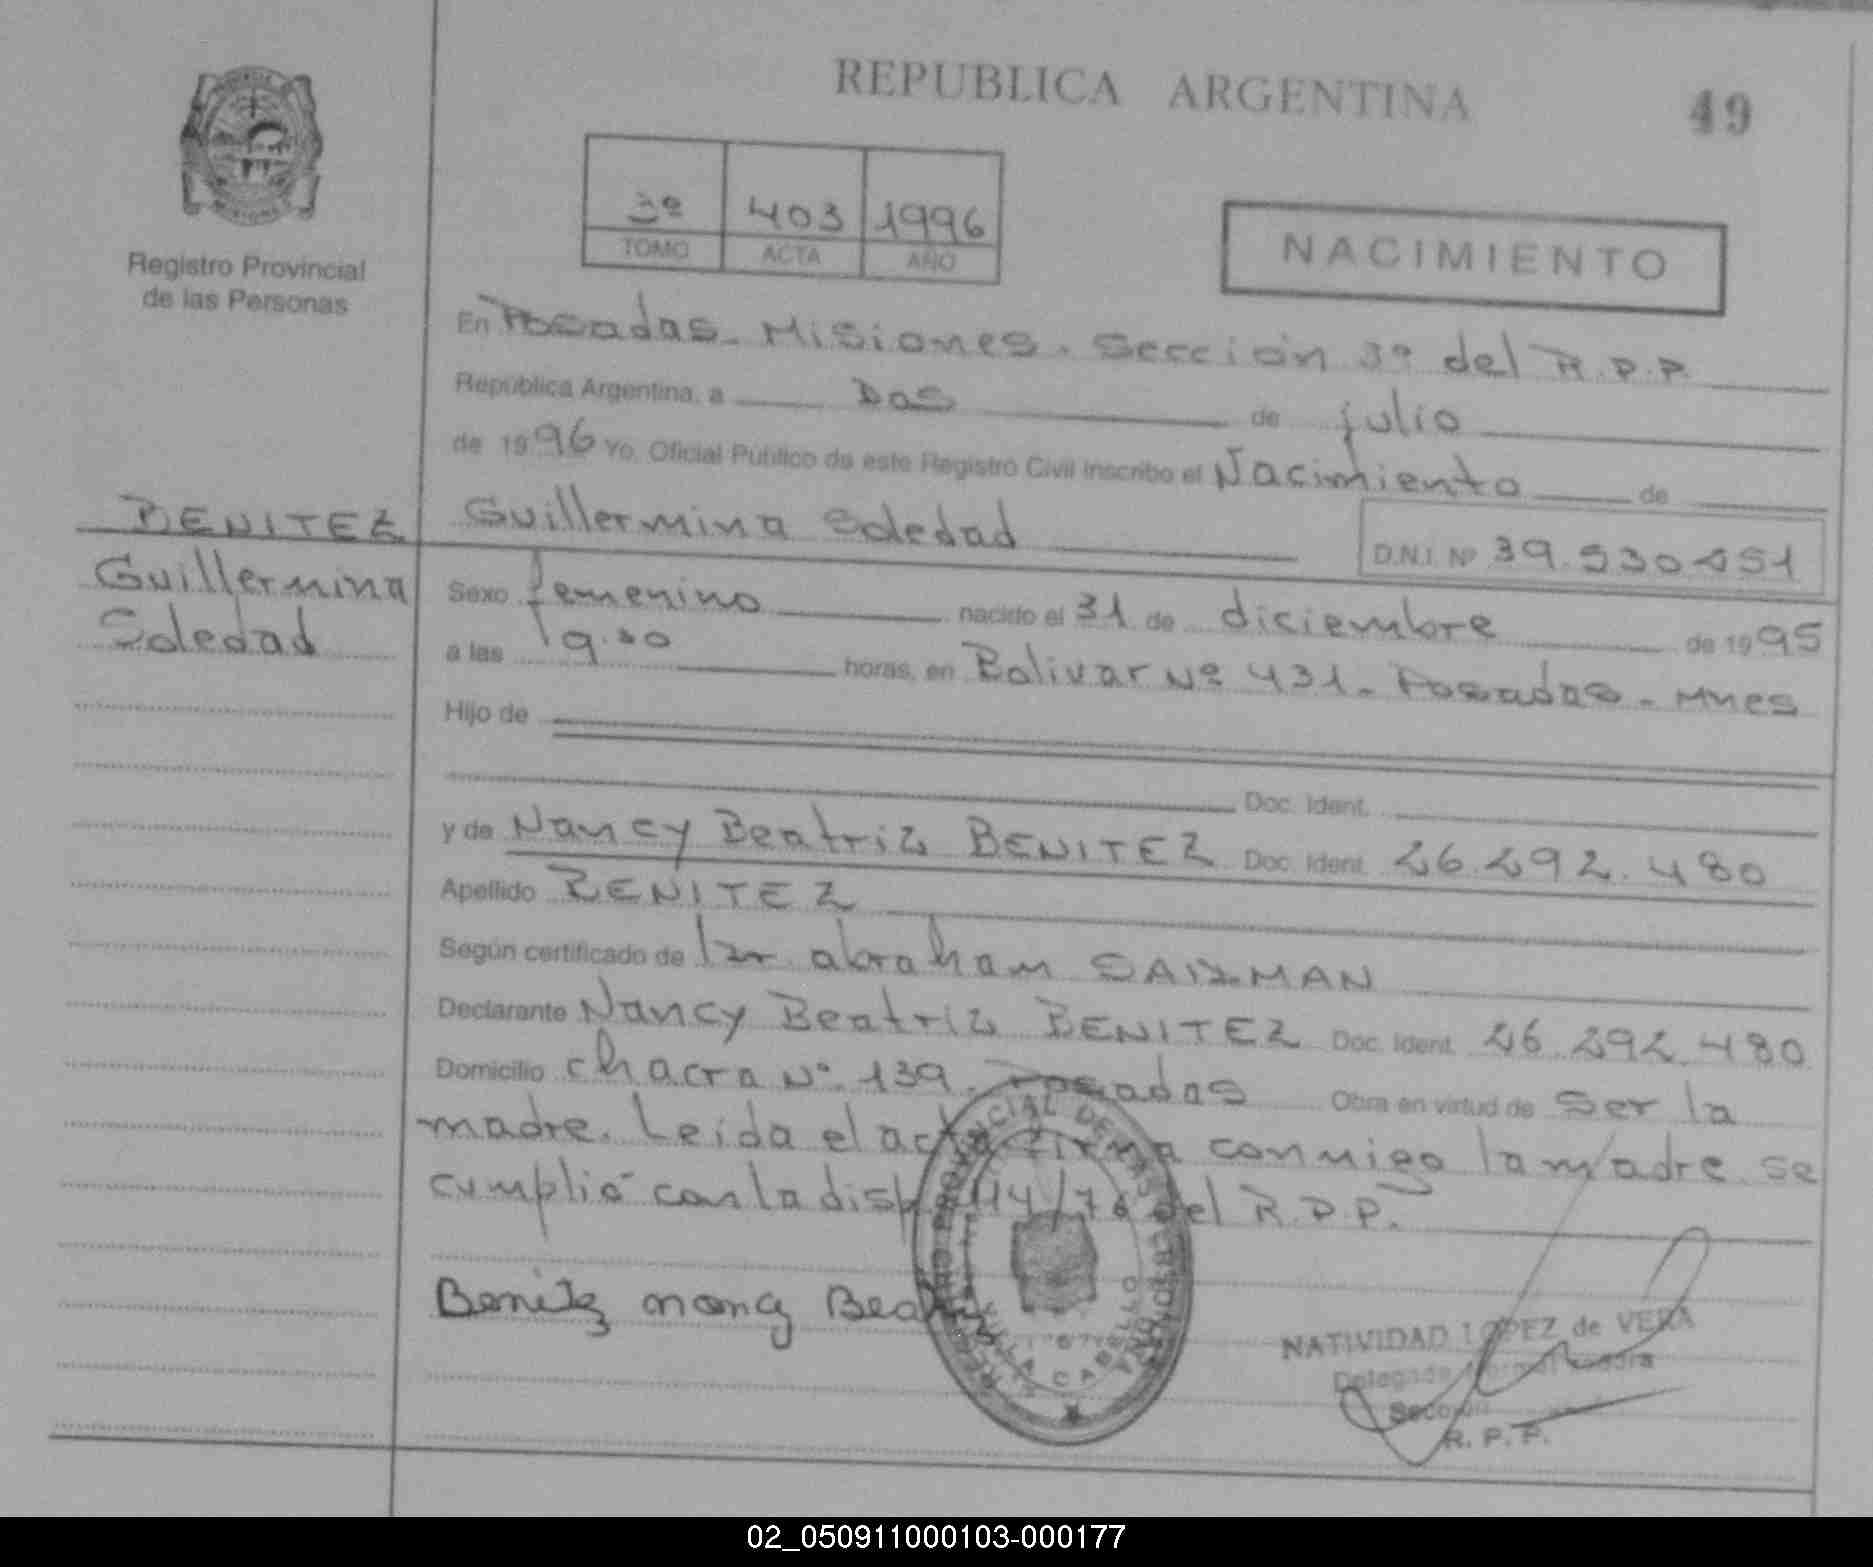 REPUBLICA ARGENTINA
49
Registro Provincial
de las Personas
3º 403 1996
TOMO ACTA AÑO
NACIMIENTO
En Posadas - Misiones. Sección 3º del R.P.P.
República Argentina, a Dos de julio
de 1996 Yo, Oficial Público de este Registro Civil inscribo el Nacimiento de
BENITEZ
Guillermina
Soledad
Guillermina Soledad D.N.I. Nº 39.530.251
Sexo femenino nacido el 31 de diciembre de 1995
a las horas, en Bolivar Nº 431 - Posadas - Mnes
Hijo de
Doc. Ident.
y de Nancy Beatriz BENITEZ Doc. Ident. 26.292.480
Apellido BENITEZ
Según certificado de Dr. abraham
Declarante Nancy Beatriz BENITEZ Doc. Ident. 26.292.480
Domicilio chacra Nº 139. Posadas Obra en virtud de ser la
madre. Leída el acta firma conmigo la madre. se
cumplió con la disp. 114/76 del R.P.P.
Benitez nancy Beatriz
NATIVIDAD LOPEZ de VERA
R. P. P.
02_050911000103-000177